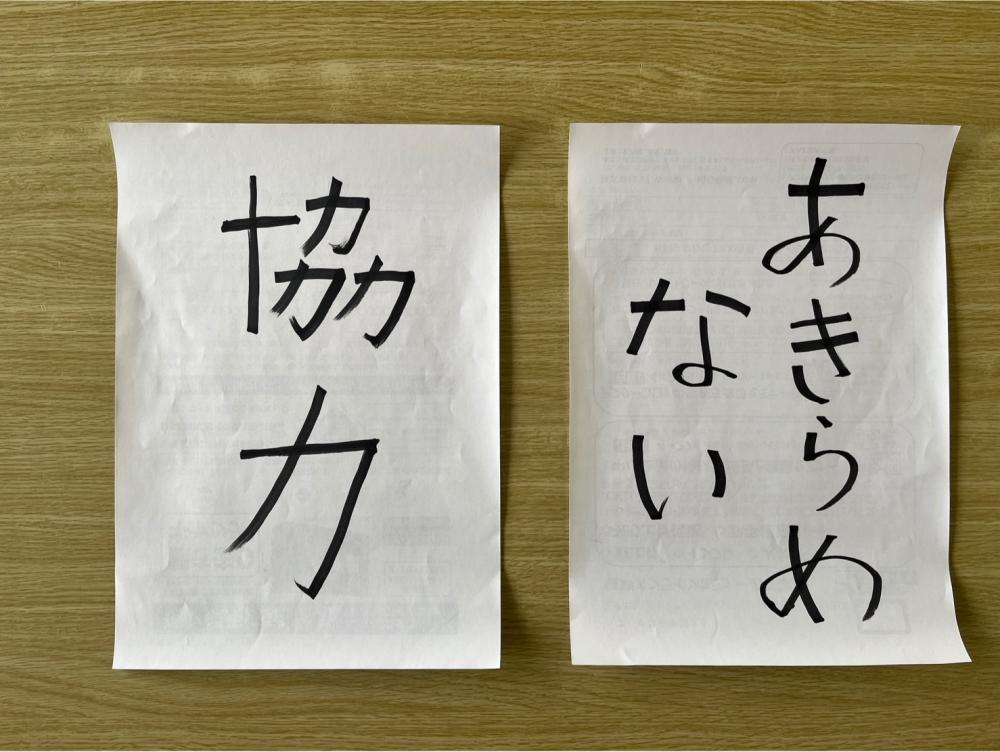 あきらめ
ない
協力